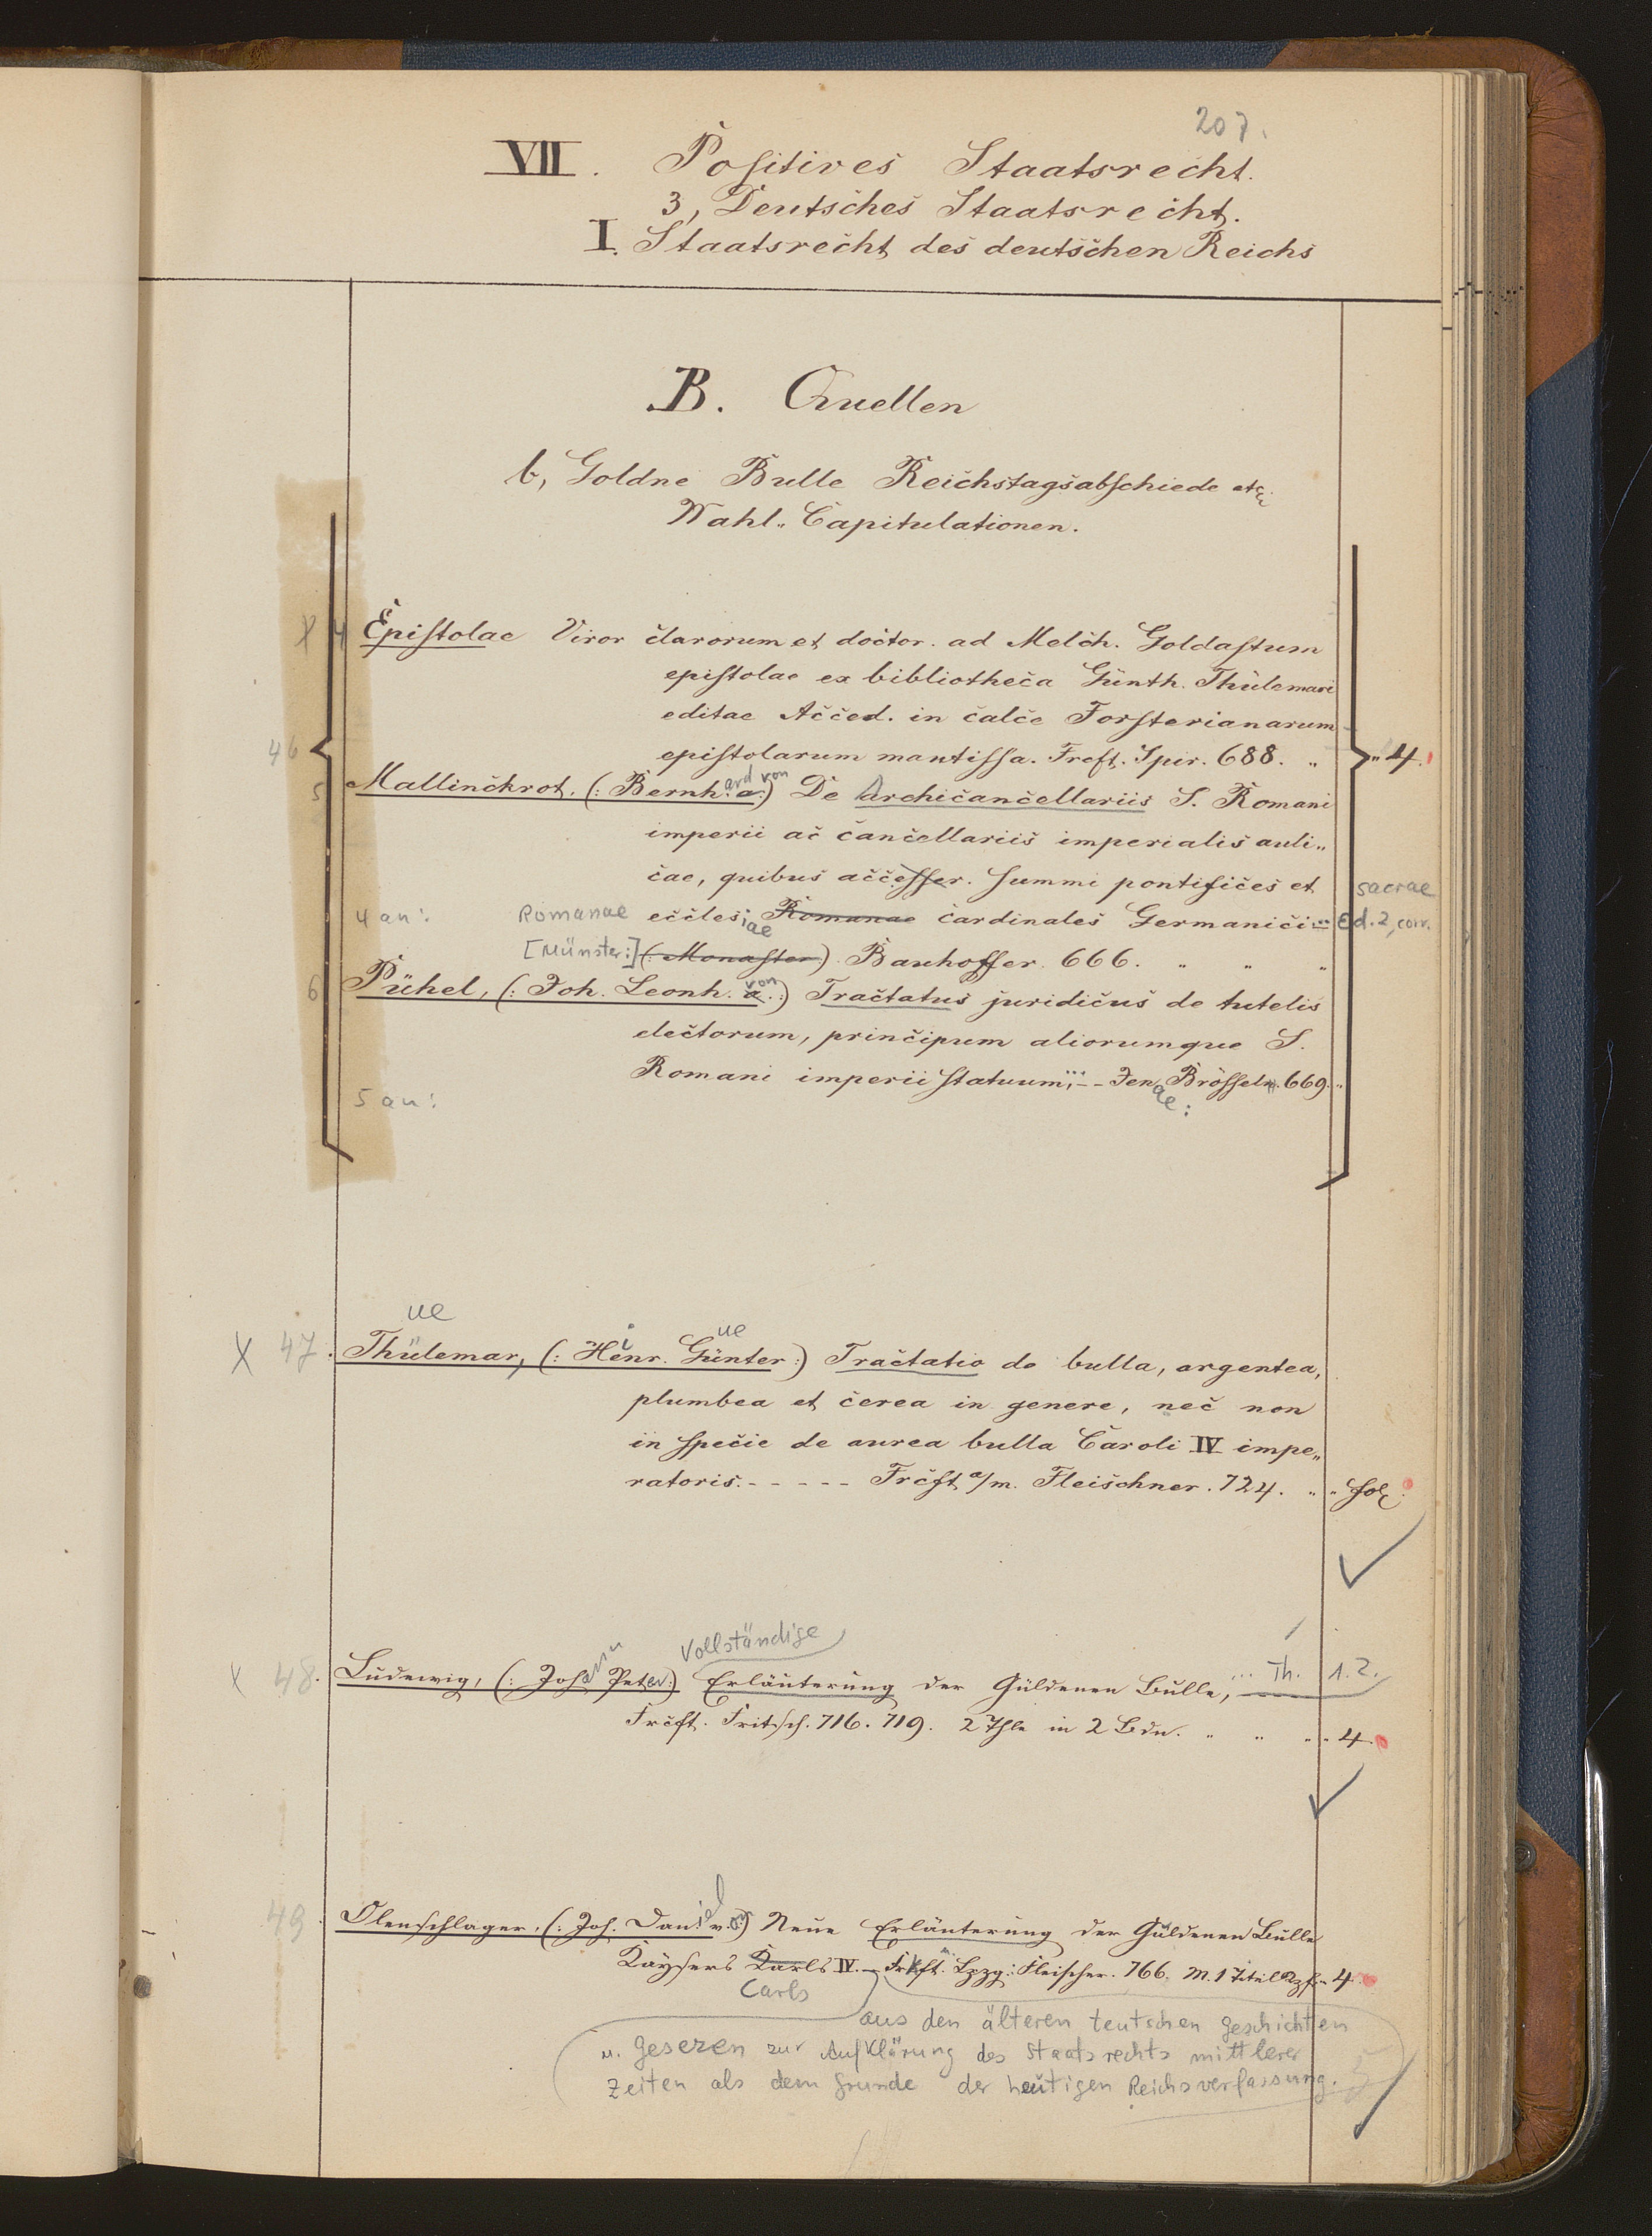 207.
VII. Positives Staatsrecht.
3, Deutsches Staatsrecht.
I. Staatsrecht des deutschen Reichs
B. Quellen
b, Goldne Bulle Reichstagsabschiede etc
Wahl- Capitulationen.
X 4 Epistolae Viror clarorum et doctor. ad Melch. Goldastum
epistolae ex bibliotheca Günth. Thülemari
editae Acced. in calce Forsterianarum
46 epistolarum mantissa. Frcft. Spir. 688. „ „ 4.
5 Mallinckrot, (: Bernh. ard von a :) De Archicancellariis S. Romani
imperii ac cancellariis imperialis auli„
cae, quibus accesser. summi pontifices et sacrae
4 an: Romanae eccles: iae Romanae cardinales Germanici.. Ed. 2, corr.
[Münster:] (: Monaster) Bauhoffer. 666. „ „ „
6 Pühel, (: Joh. Leonh. von a. :) Tractatus juridicus de tutelis
electorum, principum aliorumque S.
Romani imperii statuum;... -- Jen ae: Brösseln 669. „
5 an:
ue
X 47. Thülemar, (: Heinr. Günter ue :) Tractatio de bulla, argentea,
plumbea et cerea in genere, nec non
in specie de aurea bulla Caroli IV impe„
ratoris. - - - - - Frcft a/m. Fleischner. 724. „ „ fol.
Vollständige
X 48. Ludewig, (: Johann Peter :) Erläuterung der Güldenen Bulle, ... Th. 1. 2.
Frcft. Fritsch. 716. 719. 2 Thle in 2 Bdn. „ „ „ 4.
49. Olenschlager, (: Joh. Daniel v. on :) Neue Erläuterung der Güldenen Bulle
Kaysers Karls IV. - Frkft. u. Lpzg: Fleischer. 766. M. 1 Titel Kpf. „ 4.
Carls
aus den älteren teutschen Geschichten
u. Gesezen zur Aufklärung des Staatsrechts mittlerer
Zeiten als dem Grunde der heutigen Reichsverfassung.